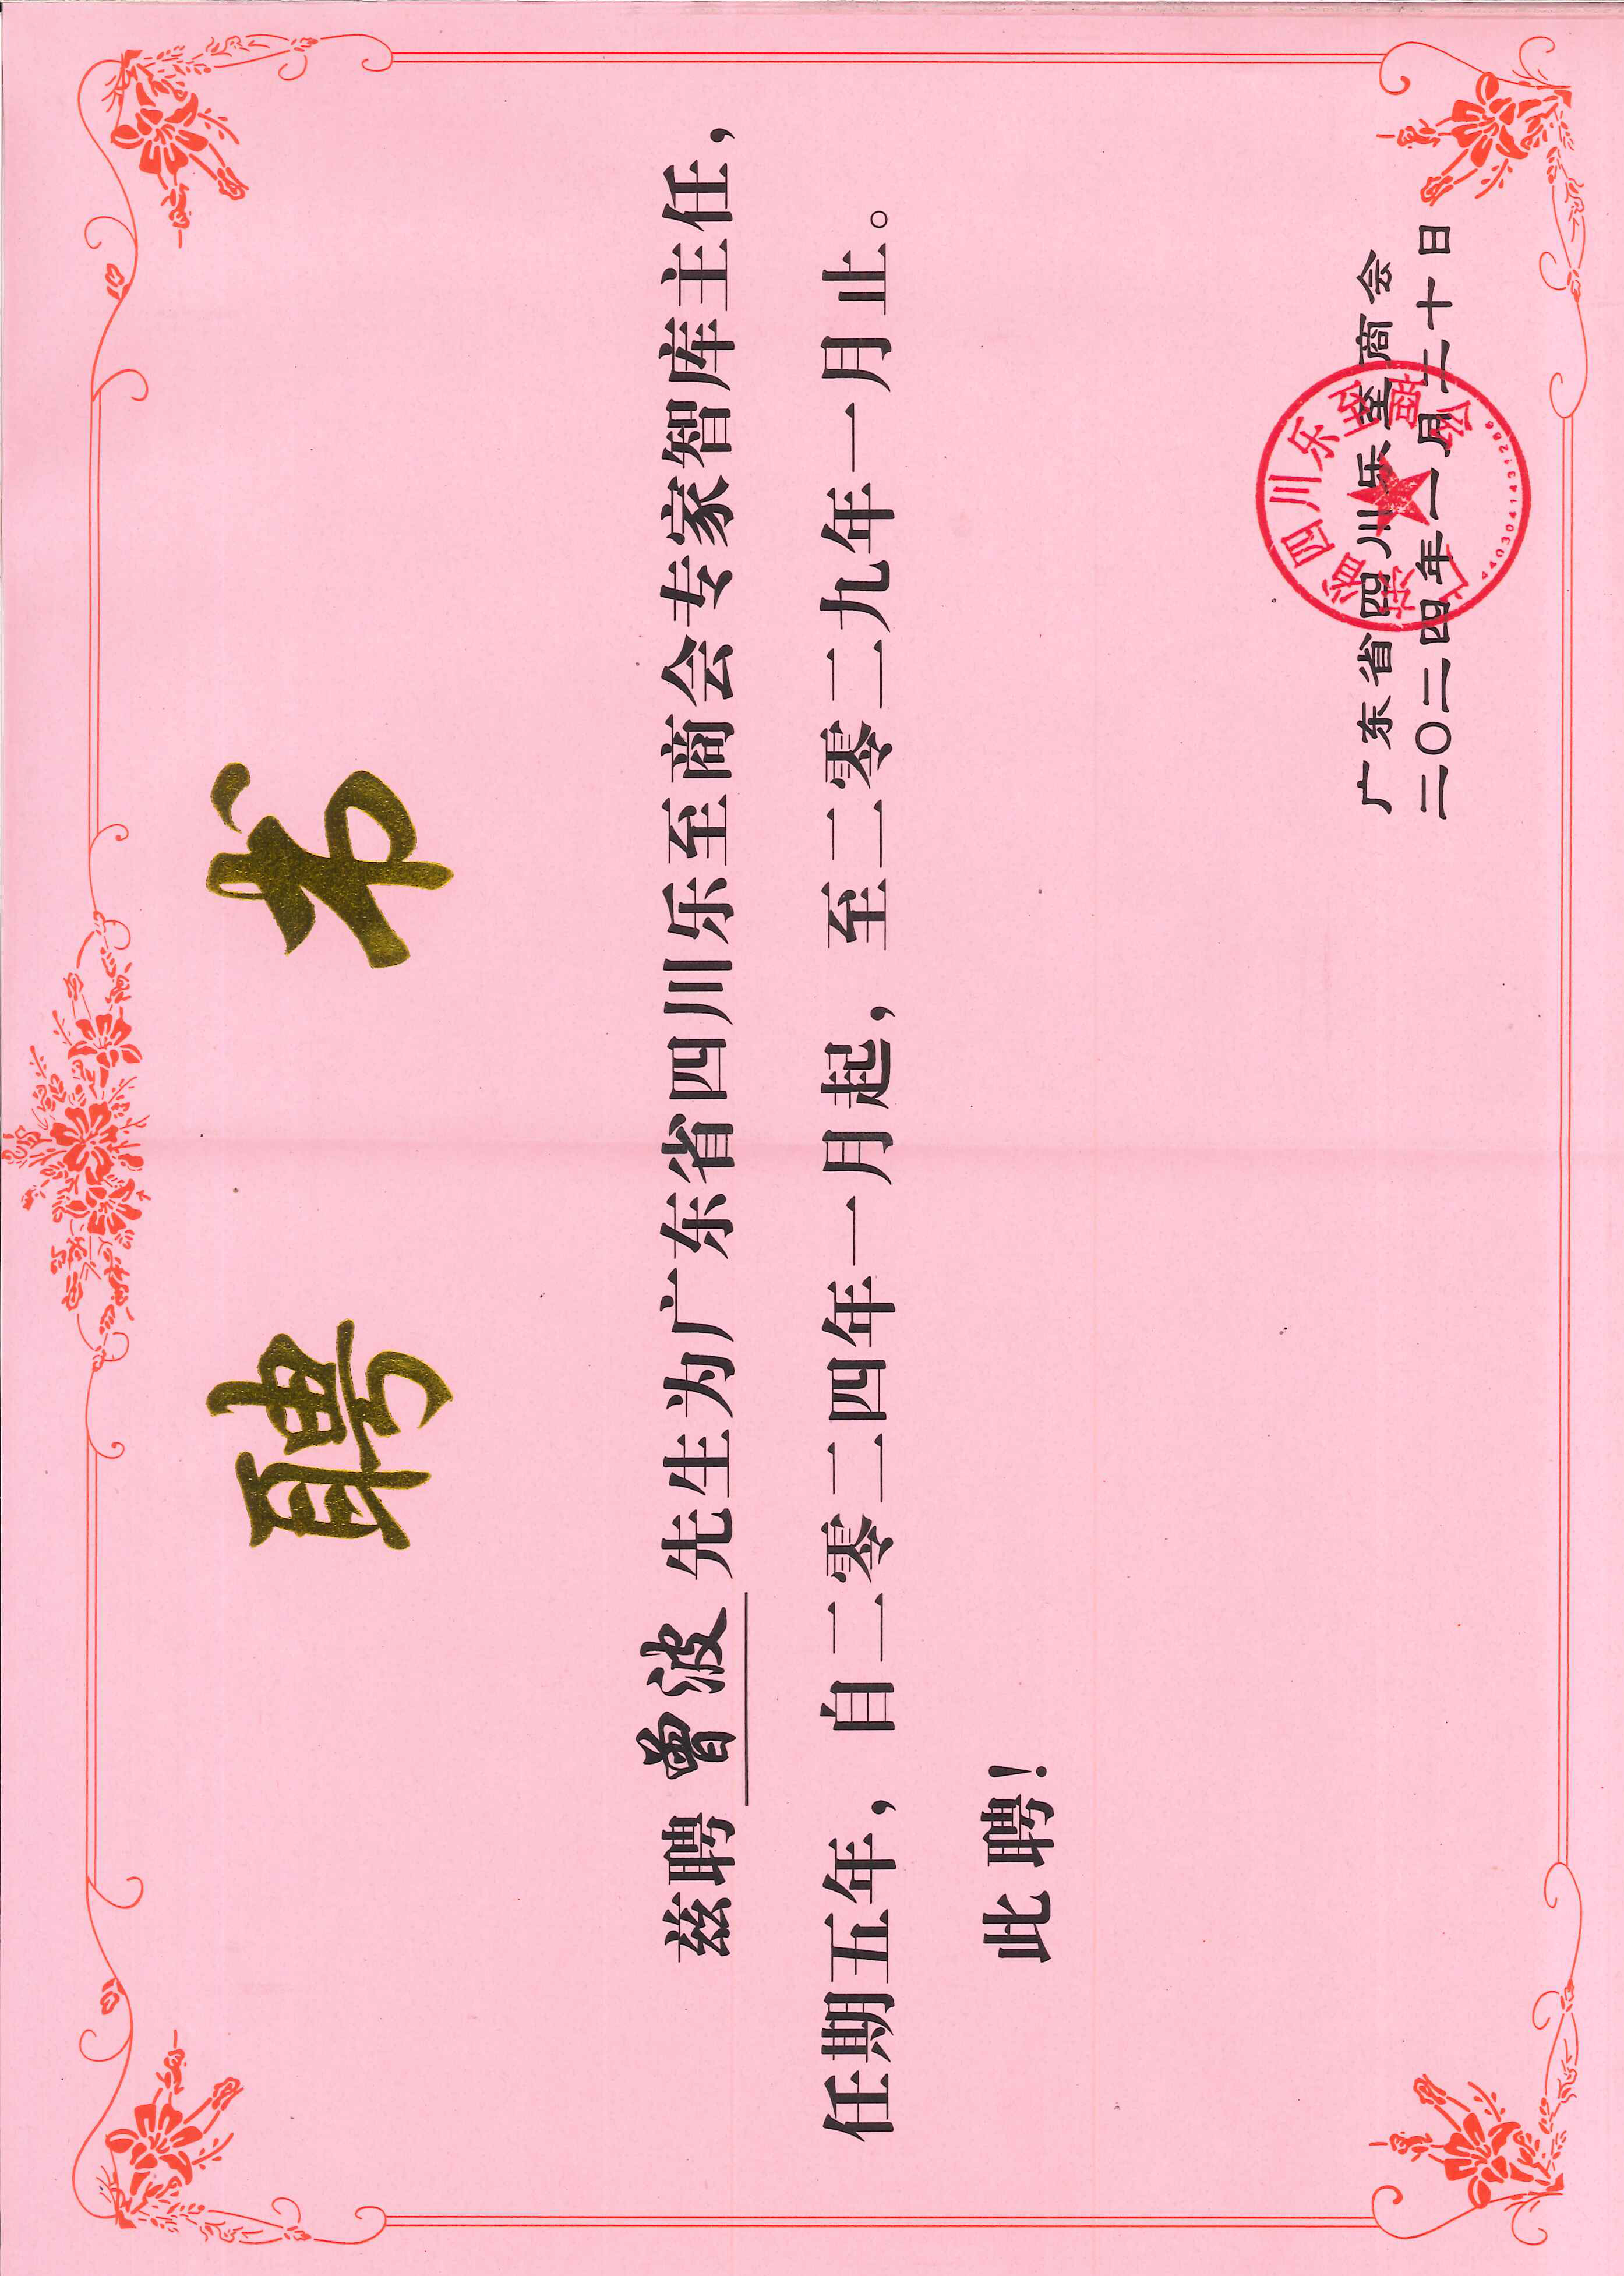 聘书
兹聘 曾波 先生为广东省四川乐至商会专家智库主任，
任期五年，自二零二四年一月起，至二零二九年一月止。
此聘！
广东省四川乐至商会
二〇二四年一月二十日
广东省四川乐至商会
4403041431286